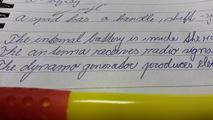 A spade has a handle, shaft
The internal battery is inside the
The antenna receives radio signa
The dynamo generator produces ele